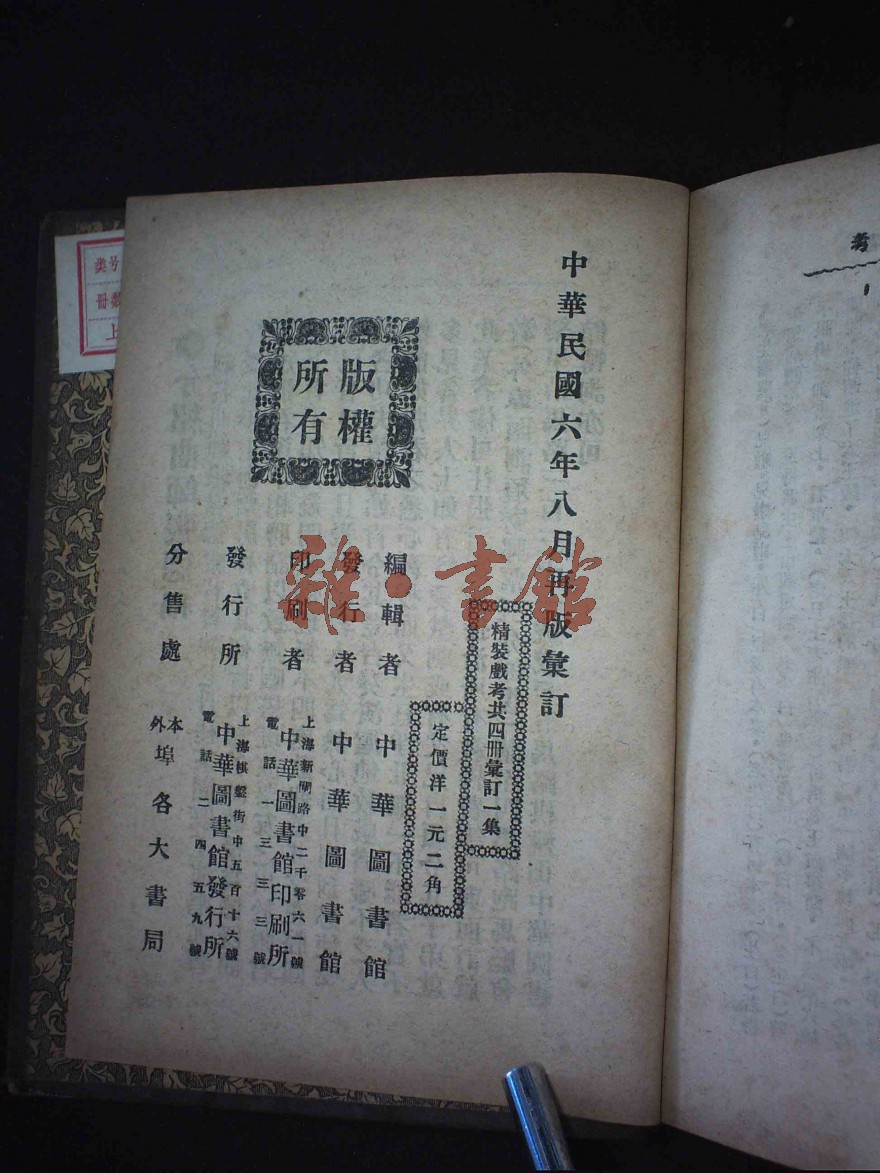 中華民國六年八月再版彙訂
精裝戲考共四冊彙訂一集
定價洋一元二角
版權
所有
編輯者　中華圖書館
發行者　中華圖書館
印刷者　上海新閘路中二千零六一號
中華圖書館印刷所
電話一三三三號
發行所　上海棋盤街中五百十六號
中華圖書館發行所
電話二四五九號
分售處　本外埠各大書局
雅·書館
考
类号
冊数
上